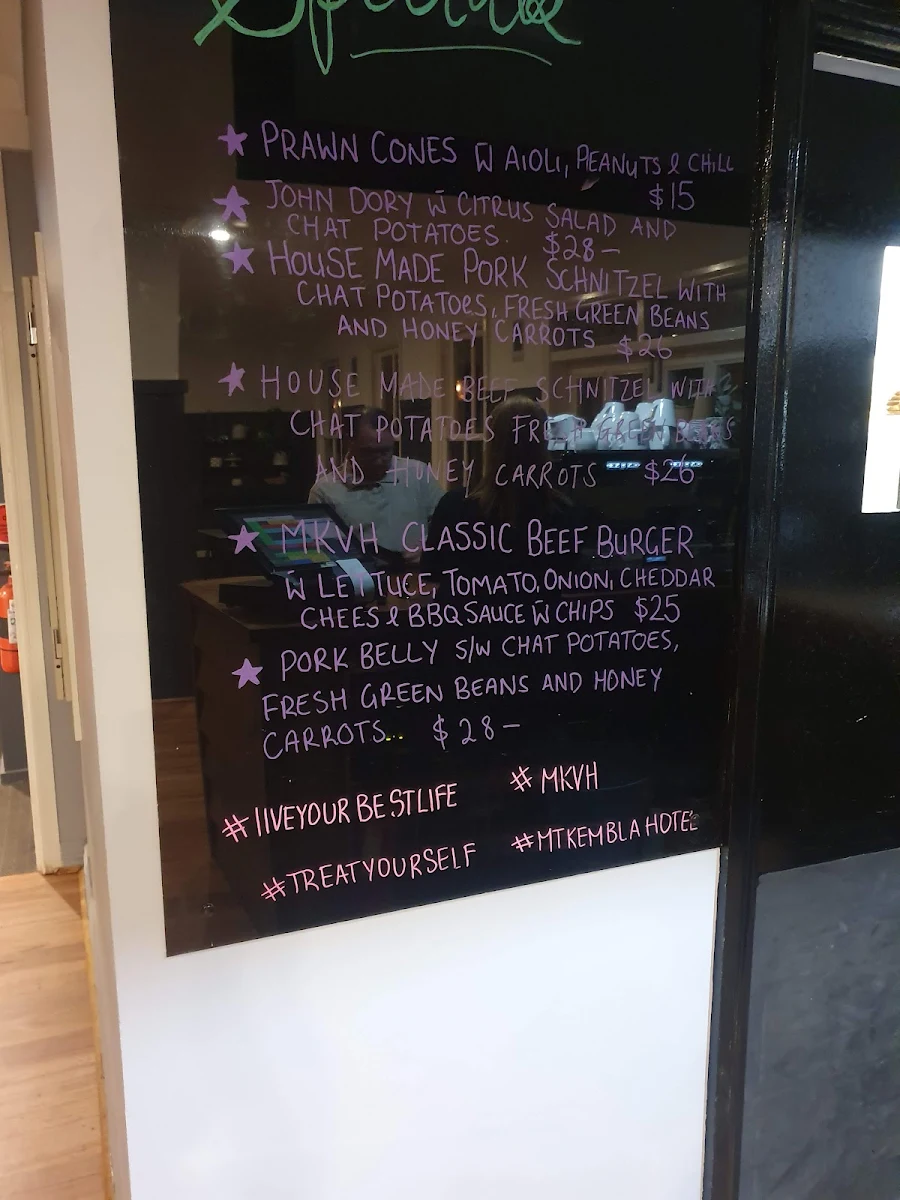 Specials
★ PRAWN CONES W̄ AIOLI, PEANUTS & CHILL
$15
★ JOHN DORY W̄ CITRUS SALAD AND
CHAT POTATOES. $28-
★ HOUSE MADE PORK SCHNITZEL WITH
CHAT POTATOES, FRESH GREEN BEANS
AND HONEY CARROTS $26
★ HOUSE MADE BEEF SCHNITZEL WITH
CHAT POTATOES FRESH GREEN BEANS
AND HONEY CARROTS $26
★ MKVH CLASSIC BEEF BURGER
W̄ LETTUCE, TOMATO, ONION, CHEDDAR
CHEES & BBQ SAUCE W̄ CHIPS $25
★ PORK BELLY S/W CHAT POTATOES,
FRESH GREEN BEANS AND HONEY
CARROTS... $28-
#LIVEYOURBESTLIFE #MKVH
#TREATYOURSELF #MTKEMBLAHOTEL